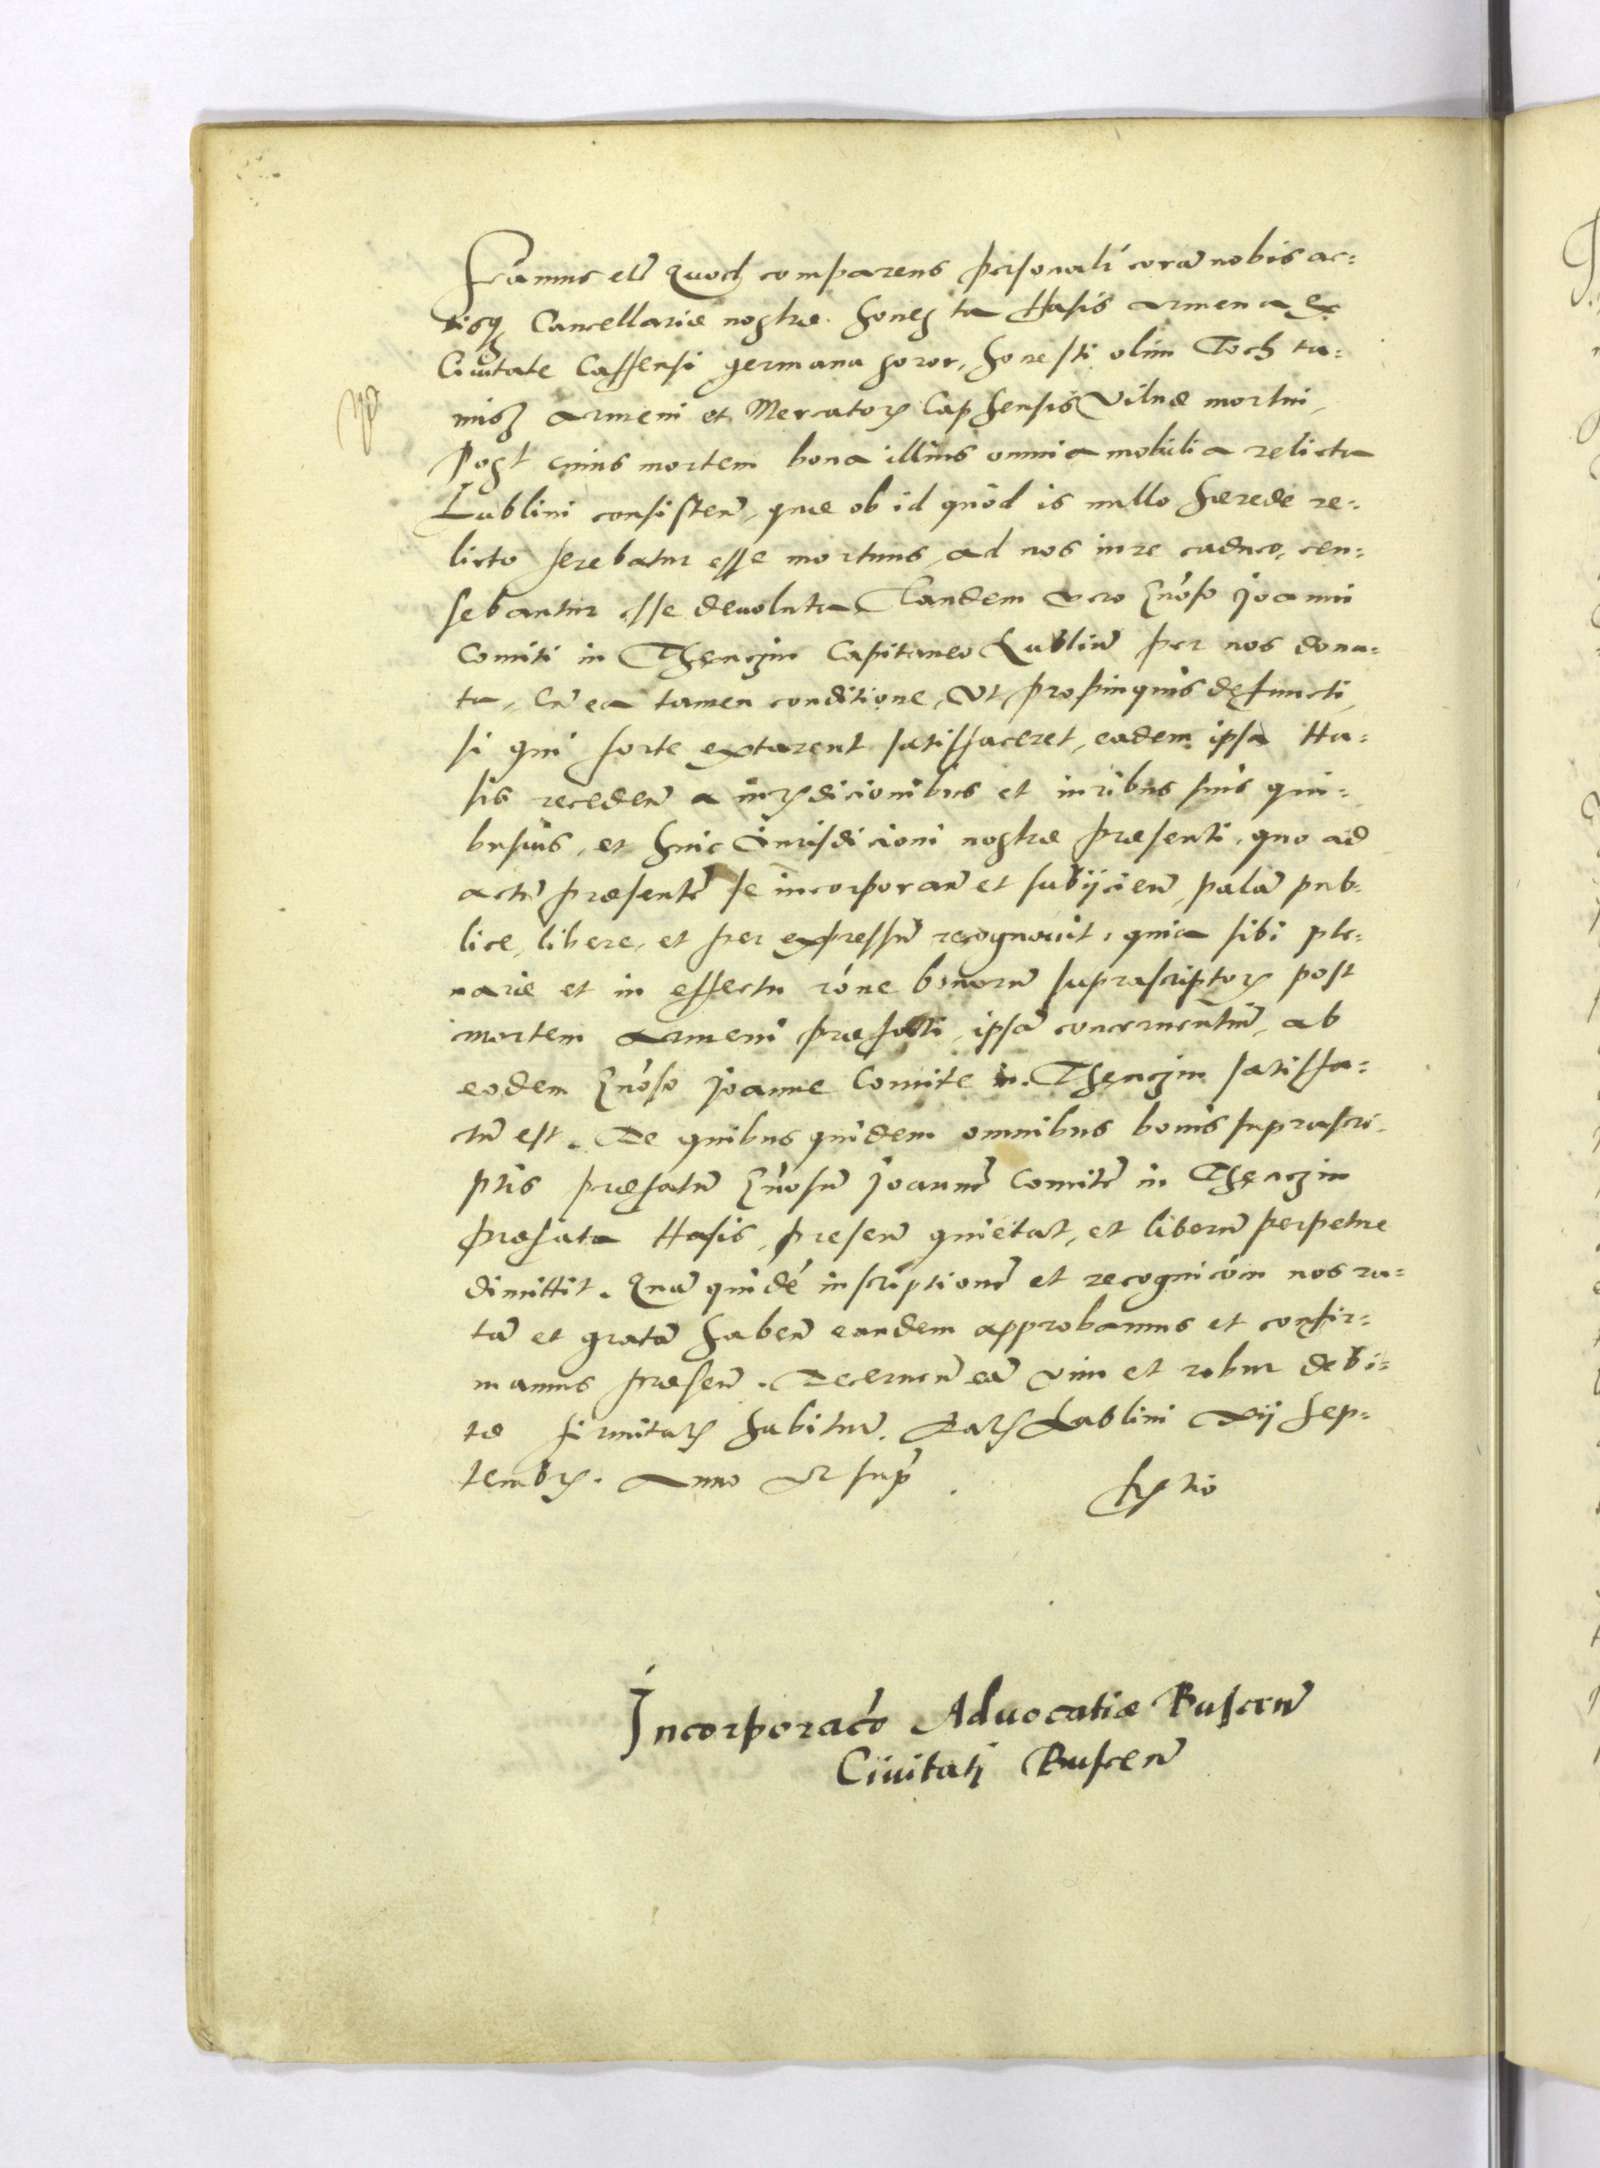 Scimus etc̃ Quod comparens personalr̃ corã nobis ac=
tisq̃ Cancellariæ nostræ. honesta Hasis Armena ex
Ciuitate Caffensi germana soror, honesti olim Toch ta=
misz Armeni et Mercatoris Caphensis Vilnæ mortui,
Post cuius mortem bona illius omnia mobilia relicta
Lublini consisteñ, quæ ob id quód is nullo hærede re=
licto ferebatur esse mortuus, ad nos iure caduco, cen=
sebantur esse deuoluta Tandem vero Gnóso Joanni
Comiti in Thęnczin Capitaneo Lubliñ per nos dona=
ta, Cũ ea tamen conditione, Vt propinquis defuncti,
si qui forte extarent satisfaceret, eadem ipsa Ha=
sis recedeñ a iurisdicionibus et iuribus suis qui=
busuis, et huic Iurisdicioni nostræ præsenti, quo ad
actũ præsentẽ se incorporañ et subijcieñ, palã pub=
lice, libere, et per expressũ recognouit, quia sibi ple=
narie et in effectu róne bonorũ suprascriptorum post
mortem Armeni præfati, ipsã concernentiũ, ab
eodem Gnóso Joanne Comite in Thęnczin satisfa=
ctũ est. De quibus quidem omnibus bonis suprascri=
ptis præfatũ Gnósum Joannẽ Comitẽ in Thęnczin
præfata Hasis, preseñ quietat, et liberũ perpetue
dimittit. Quã quidẽ inscriptionẽ et recognicóm nos ra=
tã et gratã habeñ eandem approbamus et confir=
mamus præseñ. Decerneñ eã vim et robur debi=
tæ firmitatis habiturã. Datis Lublini xij Sep=
tembris. Anno Vt supr̃
Incorporacó Aduocatiæ Busceñ
Ciuitati Busceñ